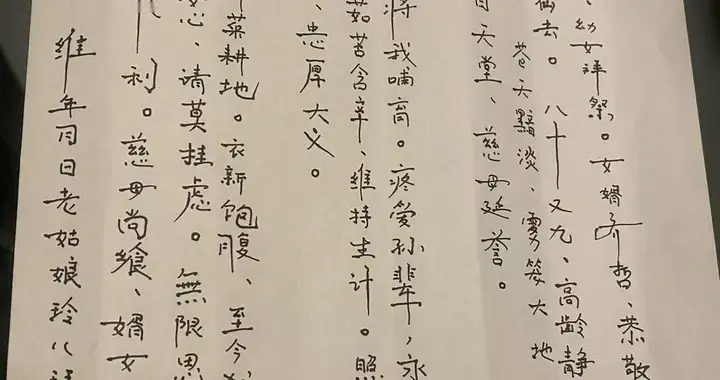 、幼女拜祭。女婿乔哲、恭敬
去。八十又九、高龄静
苍天黯淡、雾笼大地
天堂、慈母延誉。
将我哺育。疼爱孙辈，永
茹苦含辛、维持生计。照
、忠厚大义。
菜耕地。衣新饱腹、至今
心、请莫挂虑。無限思
利。慈母尚飨、婿女
維年月日老姑娘玲八